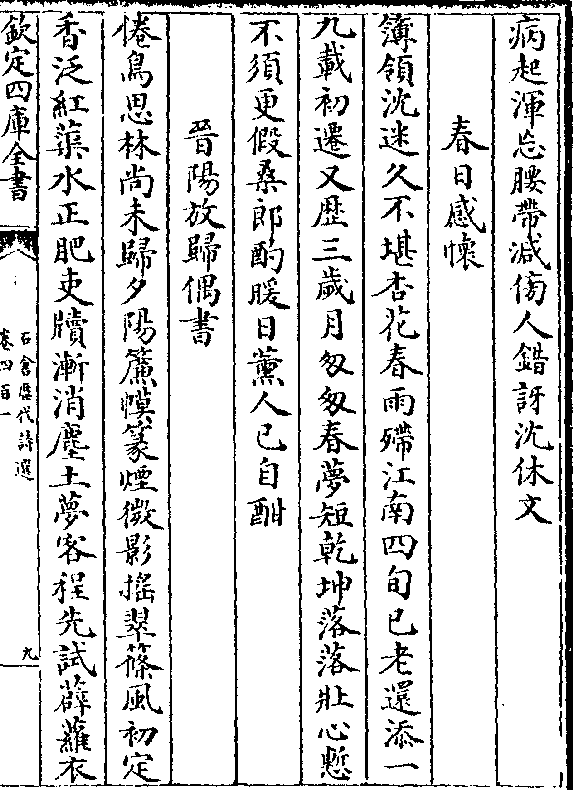 病起渾忘腰帶減傍人錯訝沈休文
春日感懷
簿領沈迷久不堪杏花春雨殢江南四旬已老還添一
九載初遷又歴三歲月匆匆春夢短乾坤落落壯心慙
不須更假桑郎酌暖日薰人已自酣
晉陽放歸偶書
倦鳥思林尚未歸夕陽簾幙篆煙微影搖翠篠風初定
香泛紅蕖水正肥吏牘漸消塵土夢客程先試薜蘿衣
欽定四庫全書
石倉歷代詩選
卷四百一
九